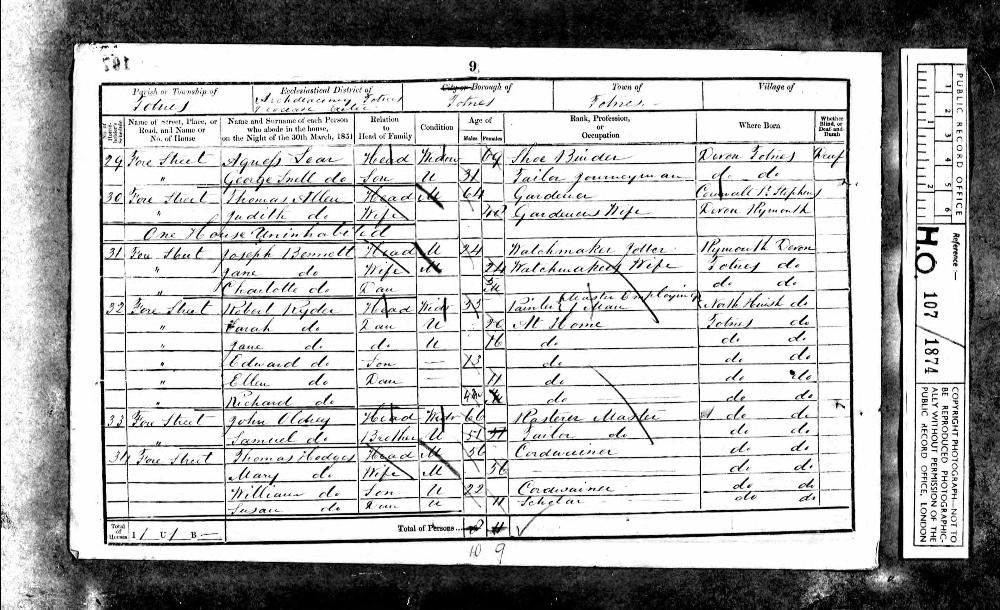 9.
Parish or Township of Ecclesiastical District of City or Borough of Town of Village of
Totnes Archdeaconry Totnes Totnes Totnes
Name of Street, Place, or Road, and Name or No. of House Name and Surname of each Person who abode in the house, on the Night of the 30th March, 1851 Relation to Head of Family Condition Age of Males Females Rank, Profession, or Occupation Where Born Whether Blind, or Deaf-and-Dumb
29 Fore Street Agness Head Widow 69 Shoe Binder Devon Totnes Deaf
" George Snell do Son U 31 Tailor Journeyman do do
30 Fore Street Thomas Allen Head M 64 Gardener Cornwall St Stephens
" Judith do Wife Gardeners Wife Devon Plymouth
One House Uninhabited
31 Fore Street Joseph Bennett Head 24 Watchmaker Plymouth Devon
" Jane do Wife M 24 Watchmakers Wife Totnes do
" Charlotte do Dau do do
32 Fore Street Robert Ryder Head Wido Painter Master Employing 1 Man North Huish do
" Sarah do Dau U 20 At Home Totnes do
" Jane do do U 16 do do do
" Edward do Son — 13 do do do
" Ellen do Dau — 11 do do do
" Richard do do do do
33 Fore Street John Head Wido 60 Master do do
" Samuel do Brother U 51 Tailor do do do
34 Fore Street Thomas Hodges Head M 50 Cordwainer do do
Mary do Wife M 56 do do
William do Son U 22 Cordwainer do do
Susan do Dau U 11 Scholar do do
Total of Houses I U B — Total of Persons...
10 9
PUBLIC RECORD OFFICE
Reference :—
H.O. 107 / 1874
COPYRIGHT PHOTOGRAPH—NOT TO BE REPRODUCED PHOTOGRAPHICALLY WITHOUT PERMISSION OF THE PUBLIC RECORD OFFICE, LONDON
1 2 3 4 5 6
1 2